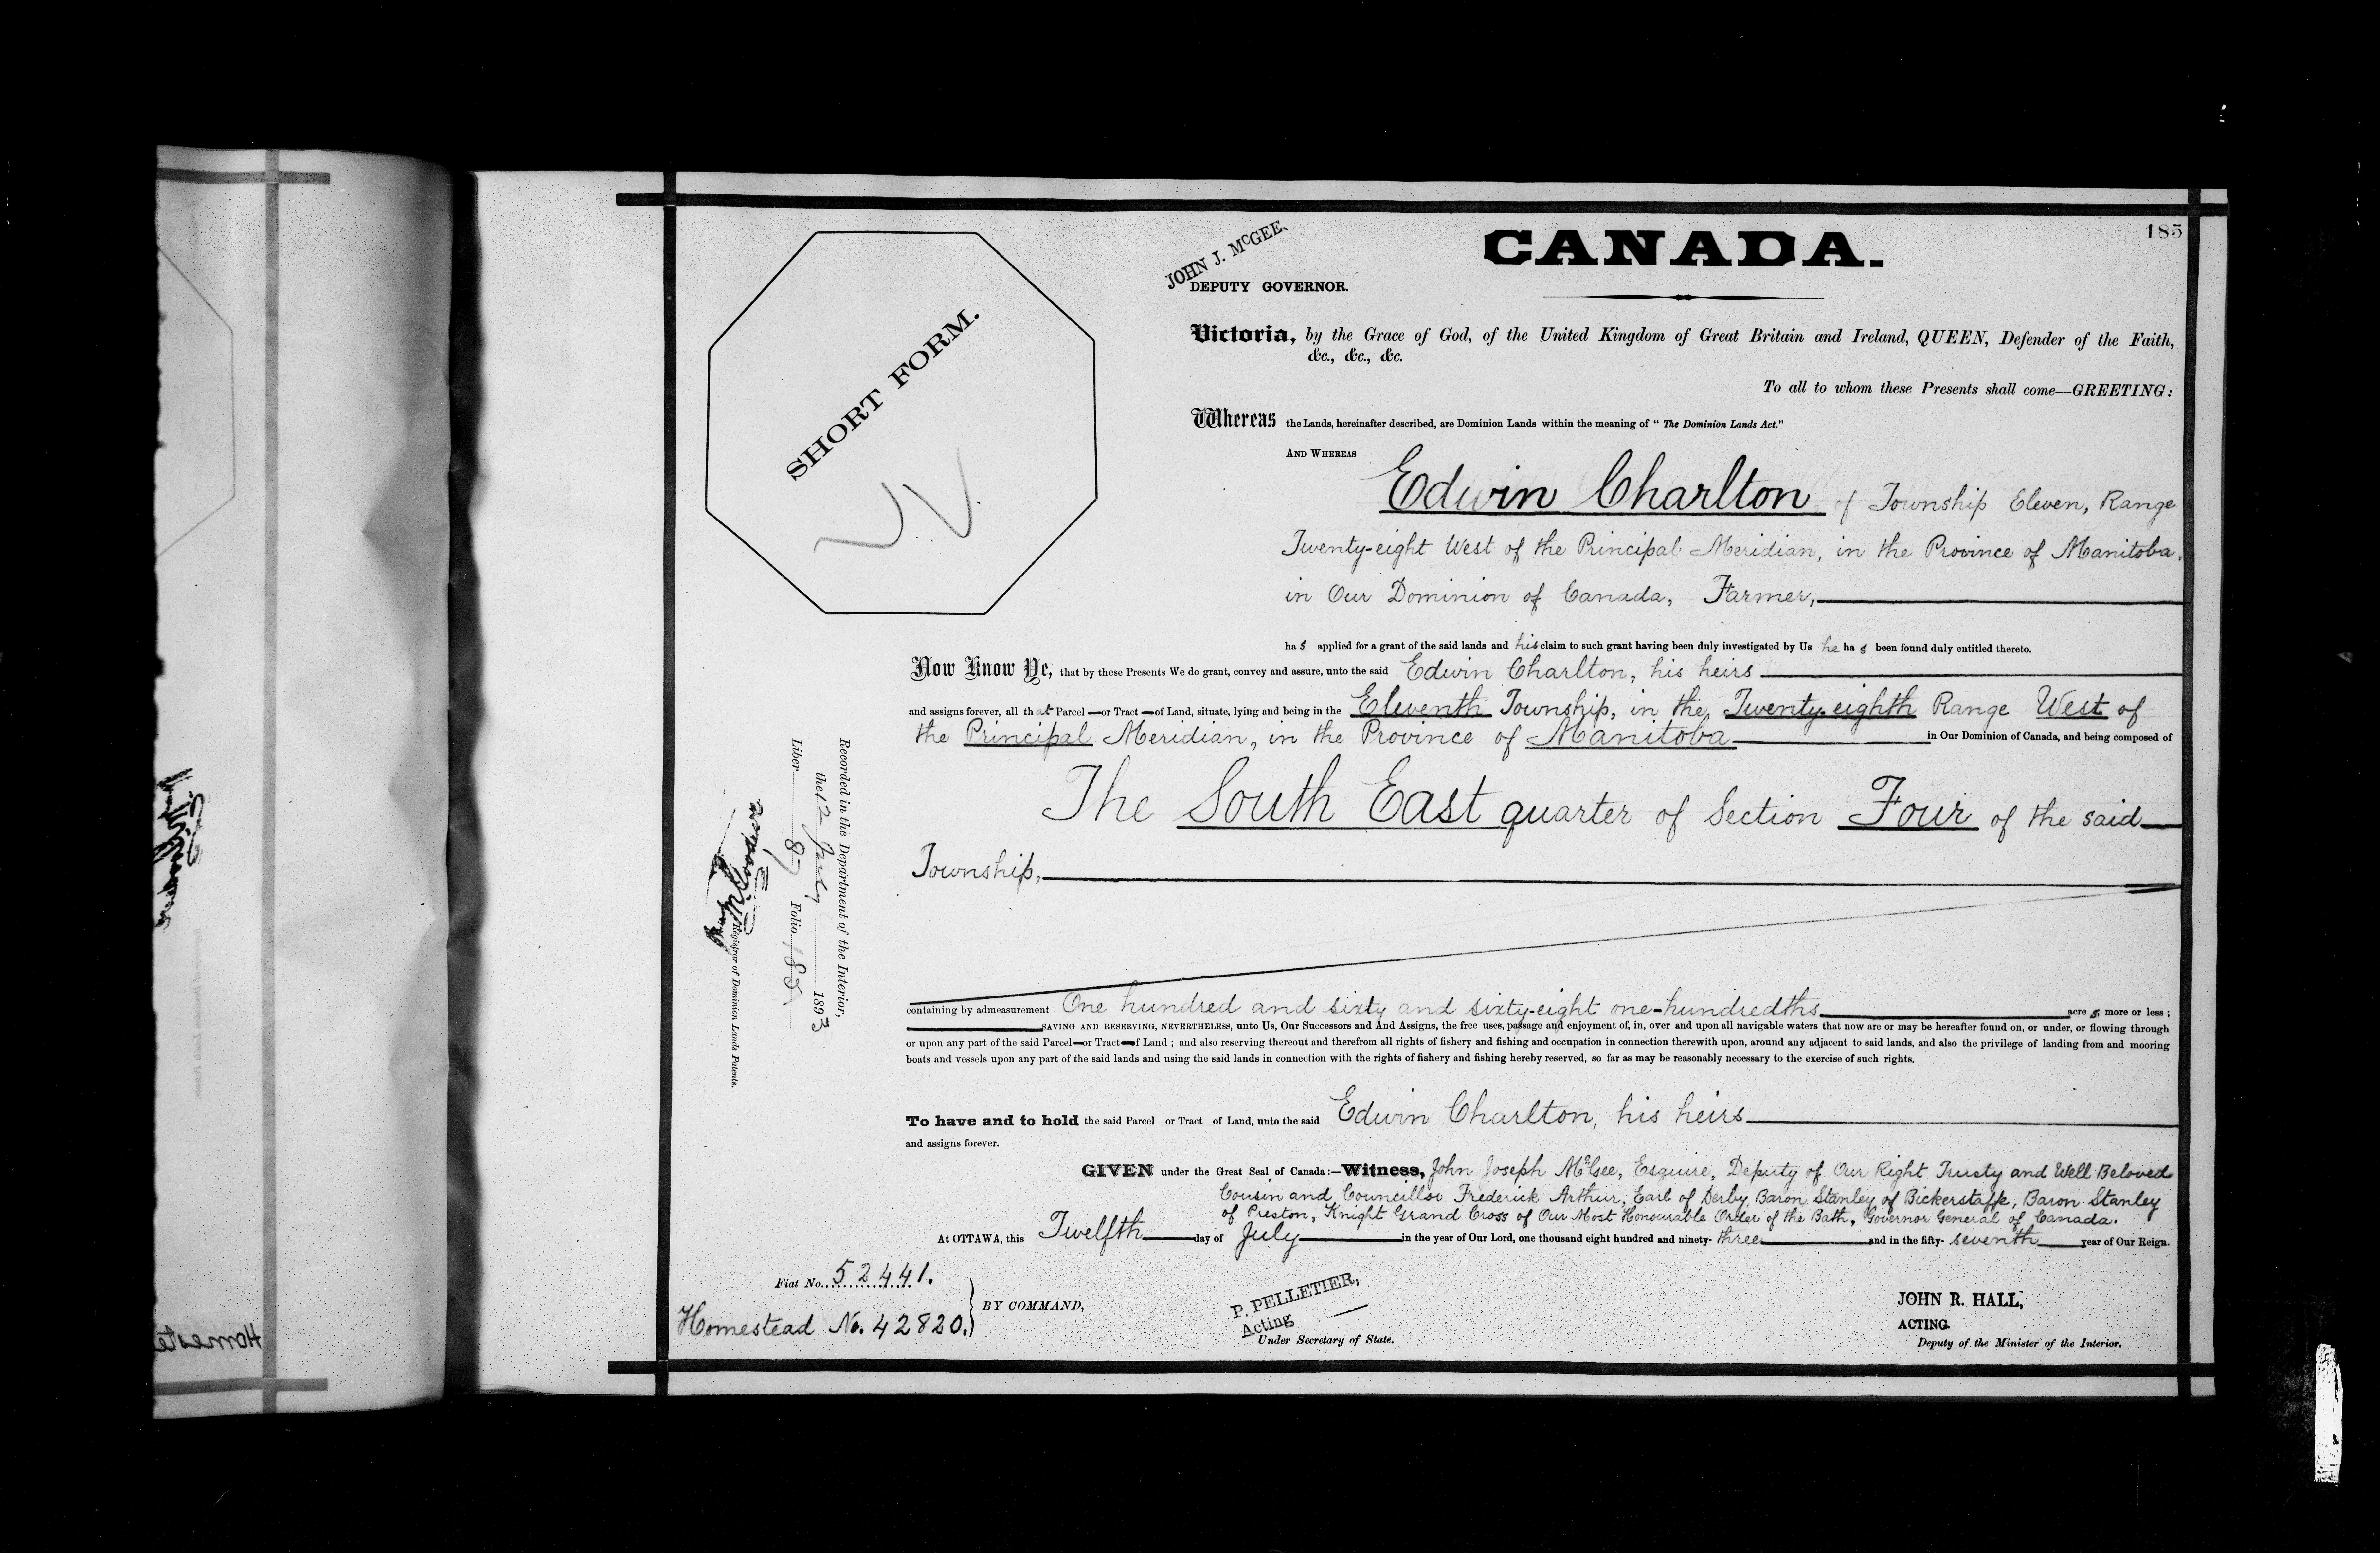 185
CANADA.
JOHN J. McGEE.
DEPUTY GOVERNOR.
SHORT FORM.
Victoria, by the Grace of God, of the United Kingdom of Great Britain and Ireland, QUEEN, Defender of the Faith,
&c., &c., &c.
To all to whom these Presents shall come—GREETING:
Whereas the Lands, hereinafter described, are Dominion Lands within the meaning of "The Dominion Lands Act."
AND WHEREAS
Edwin Charlton of Township Eleven, Range
Twenty-eight West of the Principal Meridian, in the Province of Manitoba,
in Our Dominion of Canada, Farmer,
has applied for a grant of the said lands and his claim to such grant having been duly investigated by Us he has been found duly entitled thereto.
Now Know Ye, that by these Presents We do grant, convey and assure, unto the said Edwin Charlton, his heirs
and assigns forever, all that Parcel or Tract of Land, situate, lying and being in the Eleventh Township, in the Twenty-eighth Range West of
the Principal Meridian, in the Province of Manitoba in Our Dominion of Canada, and being composed of
The South East quarter of Section Four of the said
Township,
containing by admeasurement One hundred and sixty and sixty-eight one-hundredths acres, more or less;
SAVING AND RESERVING, NEVERTHELESS, unto Us, Our Successors and And Assigns, the free uses, passage and enjoyment of, in, over and upon all navigable waters that now are or may be hereafter found on, or under, or flowing through
or upon any part of the said Parcel or Tract of Land; and also reserving thereout and therefrom all rights of fishery and fishing and occupation in connection therewith upon, around any adjacent to said lands, and also the privilege of landing from and mooring
boats and vessels upon any part of the said lands and using the said lands in connection with the rights of fishery and fishing hereby reserved, so far as may be reasonably necessary to the exercise of such rights.
To have and to hold the said Parcel or Tract of Land, unto the said Edwin Charlton, his heirs
and assigns forever.
GIVEN under the Great Seal of Canada:—Witness, John Joseph McGee, Esquire, Deputy of Our Right Trusty and Well Beloved
Cousin and Councillor Frederick Arthur, Earl of Derby, Baron Stanley of Bickerstaffe, Baron Stanley
of Preston, Knight Grand Cross of Our Most Honourable Order of the Bath, Governor General of Canada.
At OTTAWA, this Twelfth day of July in the year of Our Lord, one thousand eight hundred and ninety-three and in the fifty-seventh year of Our Reign.
Fiat No. 52441.
Homestead No. 42820.
BY COMMAND,
P. PELLETIER,
Acting
Under Secretary of State.
JOHN R. HALL,
ACTING.
Deputy of the Minister of the Interior.
Recorded in the Department of the Interior,
the 12 July 1893
Liber 87 Folio 185.
Registrar of Dominion Lands Patents.
Homeste